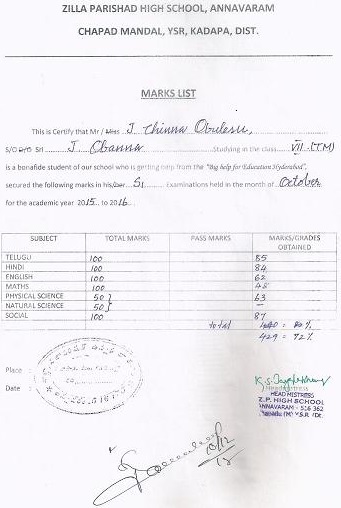 ZILLA PARISHAD HIGH SCHOOL, ANNAVARAM
CHAPAD MANDAL, YSR, KADAPA, DIST.
MARKS LIST
This is Certify that Mr / Miss J Chinna Obulesu,
S/O D/O Sri J. Channa Studying in the class VII (TM)
is a bonafide student of our school who is getting help from the "Big help for Education Hyderabad".
secured the following marks in his/her S1 Examinations held in the month of October
for the academic year 2015 to 2016
SUBJECT TOTAL MARKS PASS MARKS MARKS/GRADES OBTAINED
TELUGU 100 85
HINDI 100 84
ENGLISH 100 62
MATHS 100 48
PHYSICAL SCIENCE 50 63
NATURAL SCIENCE 50 —
SOCIAL 100 87
total
429 = 72%
Place :
Date :
Headmistress
HEAD MISTRESS
Z.P. HIGH SCHOOL
ANNAVARAM - 516 362
(M) Y.S.R. Dt.
10/12
15